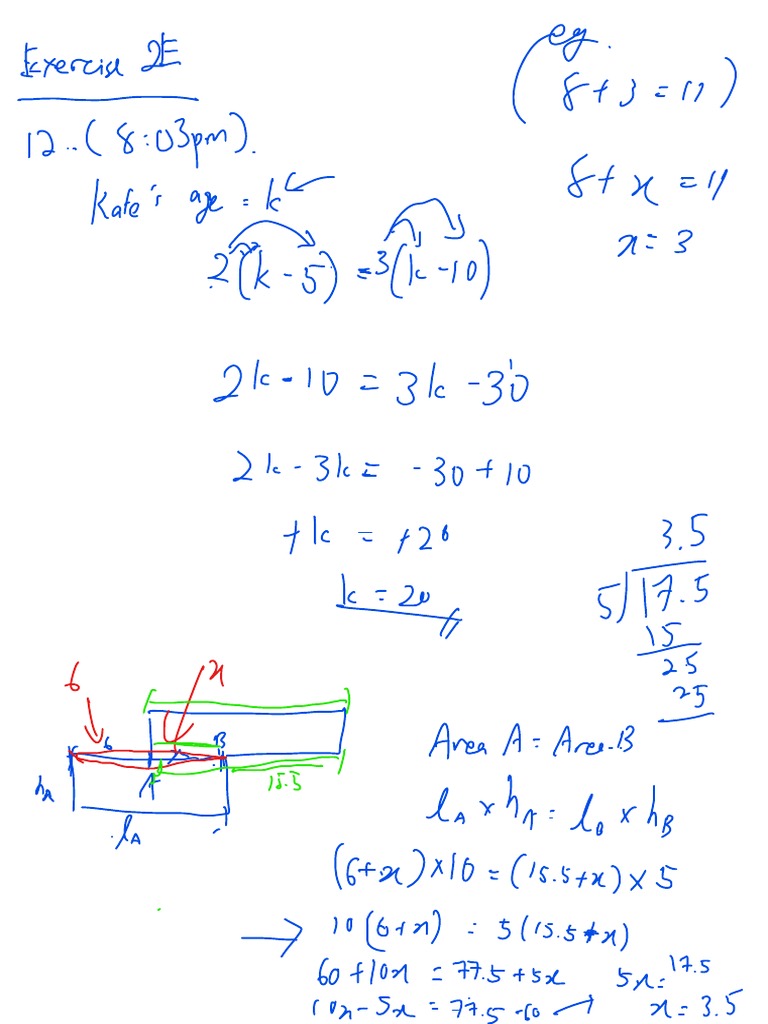 Exercise 2E
12..(8:03pm).
Kate's age = k
2(k - 5) = 3(k - 10)
2k - 10 = 3k - 30
2k - 3k = - 30 + 10
+k = +20
k = 20
(eg.
8 + 3 = 11)
8 + x = 11
x = 3
3.5
5)17.5
15
25
25
6
x
6
x
B
A
15.5
hA
lA
Area A = Area B
lA x hA = lB x hB
(6+x) x 10 = (15.5+x) x 5
→ 10(6+x) = 5(15.5+x)
60 + 10x = 77.5 + 5x
10x - 5x = 77.5 - 60 →
5x = 17.5
x = 3.5